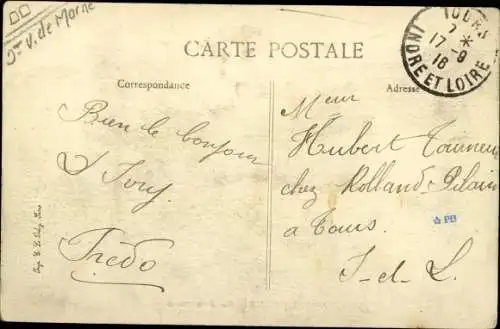 Vve de Marne
CARTE POSTALE
TOURS
7 *
17-9
16
INDRE ET LOIRE
Correspondance
Adresse
Bien le bonjour
d'Ivry.
Fredo
Mr
Hubert Tourneu
chez Rolland-Pilain
a Tours
I-et-L.
PB